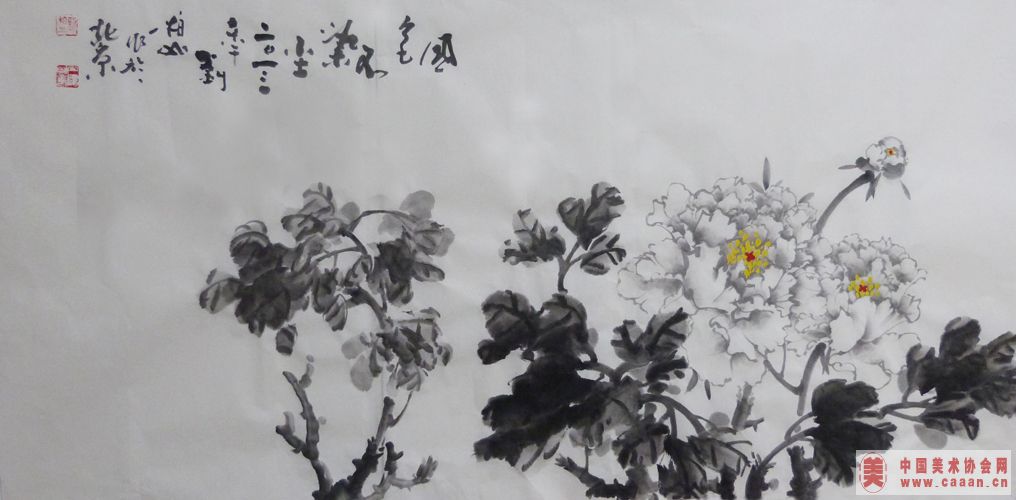 国
色
不
染
尘
二〇一三
刘
作於
北京
中国美术协会网
www.caaan.cn